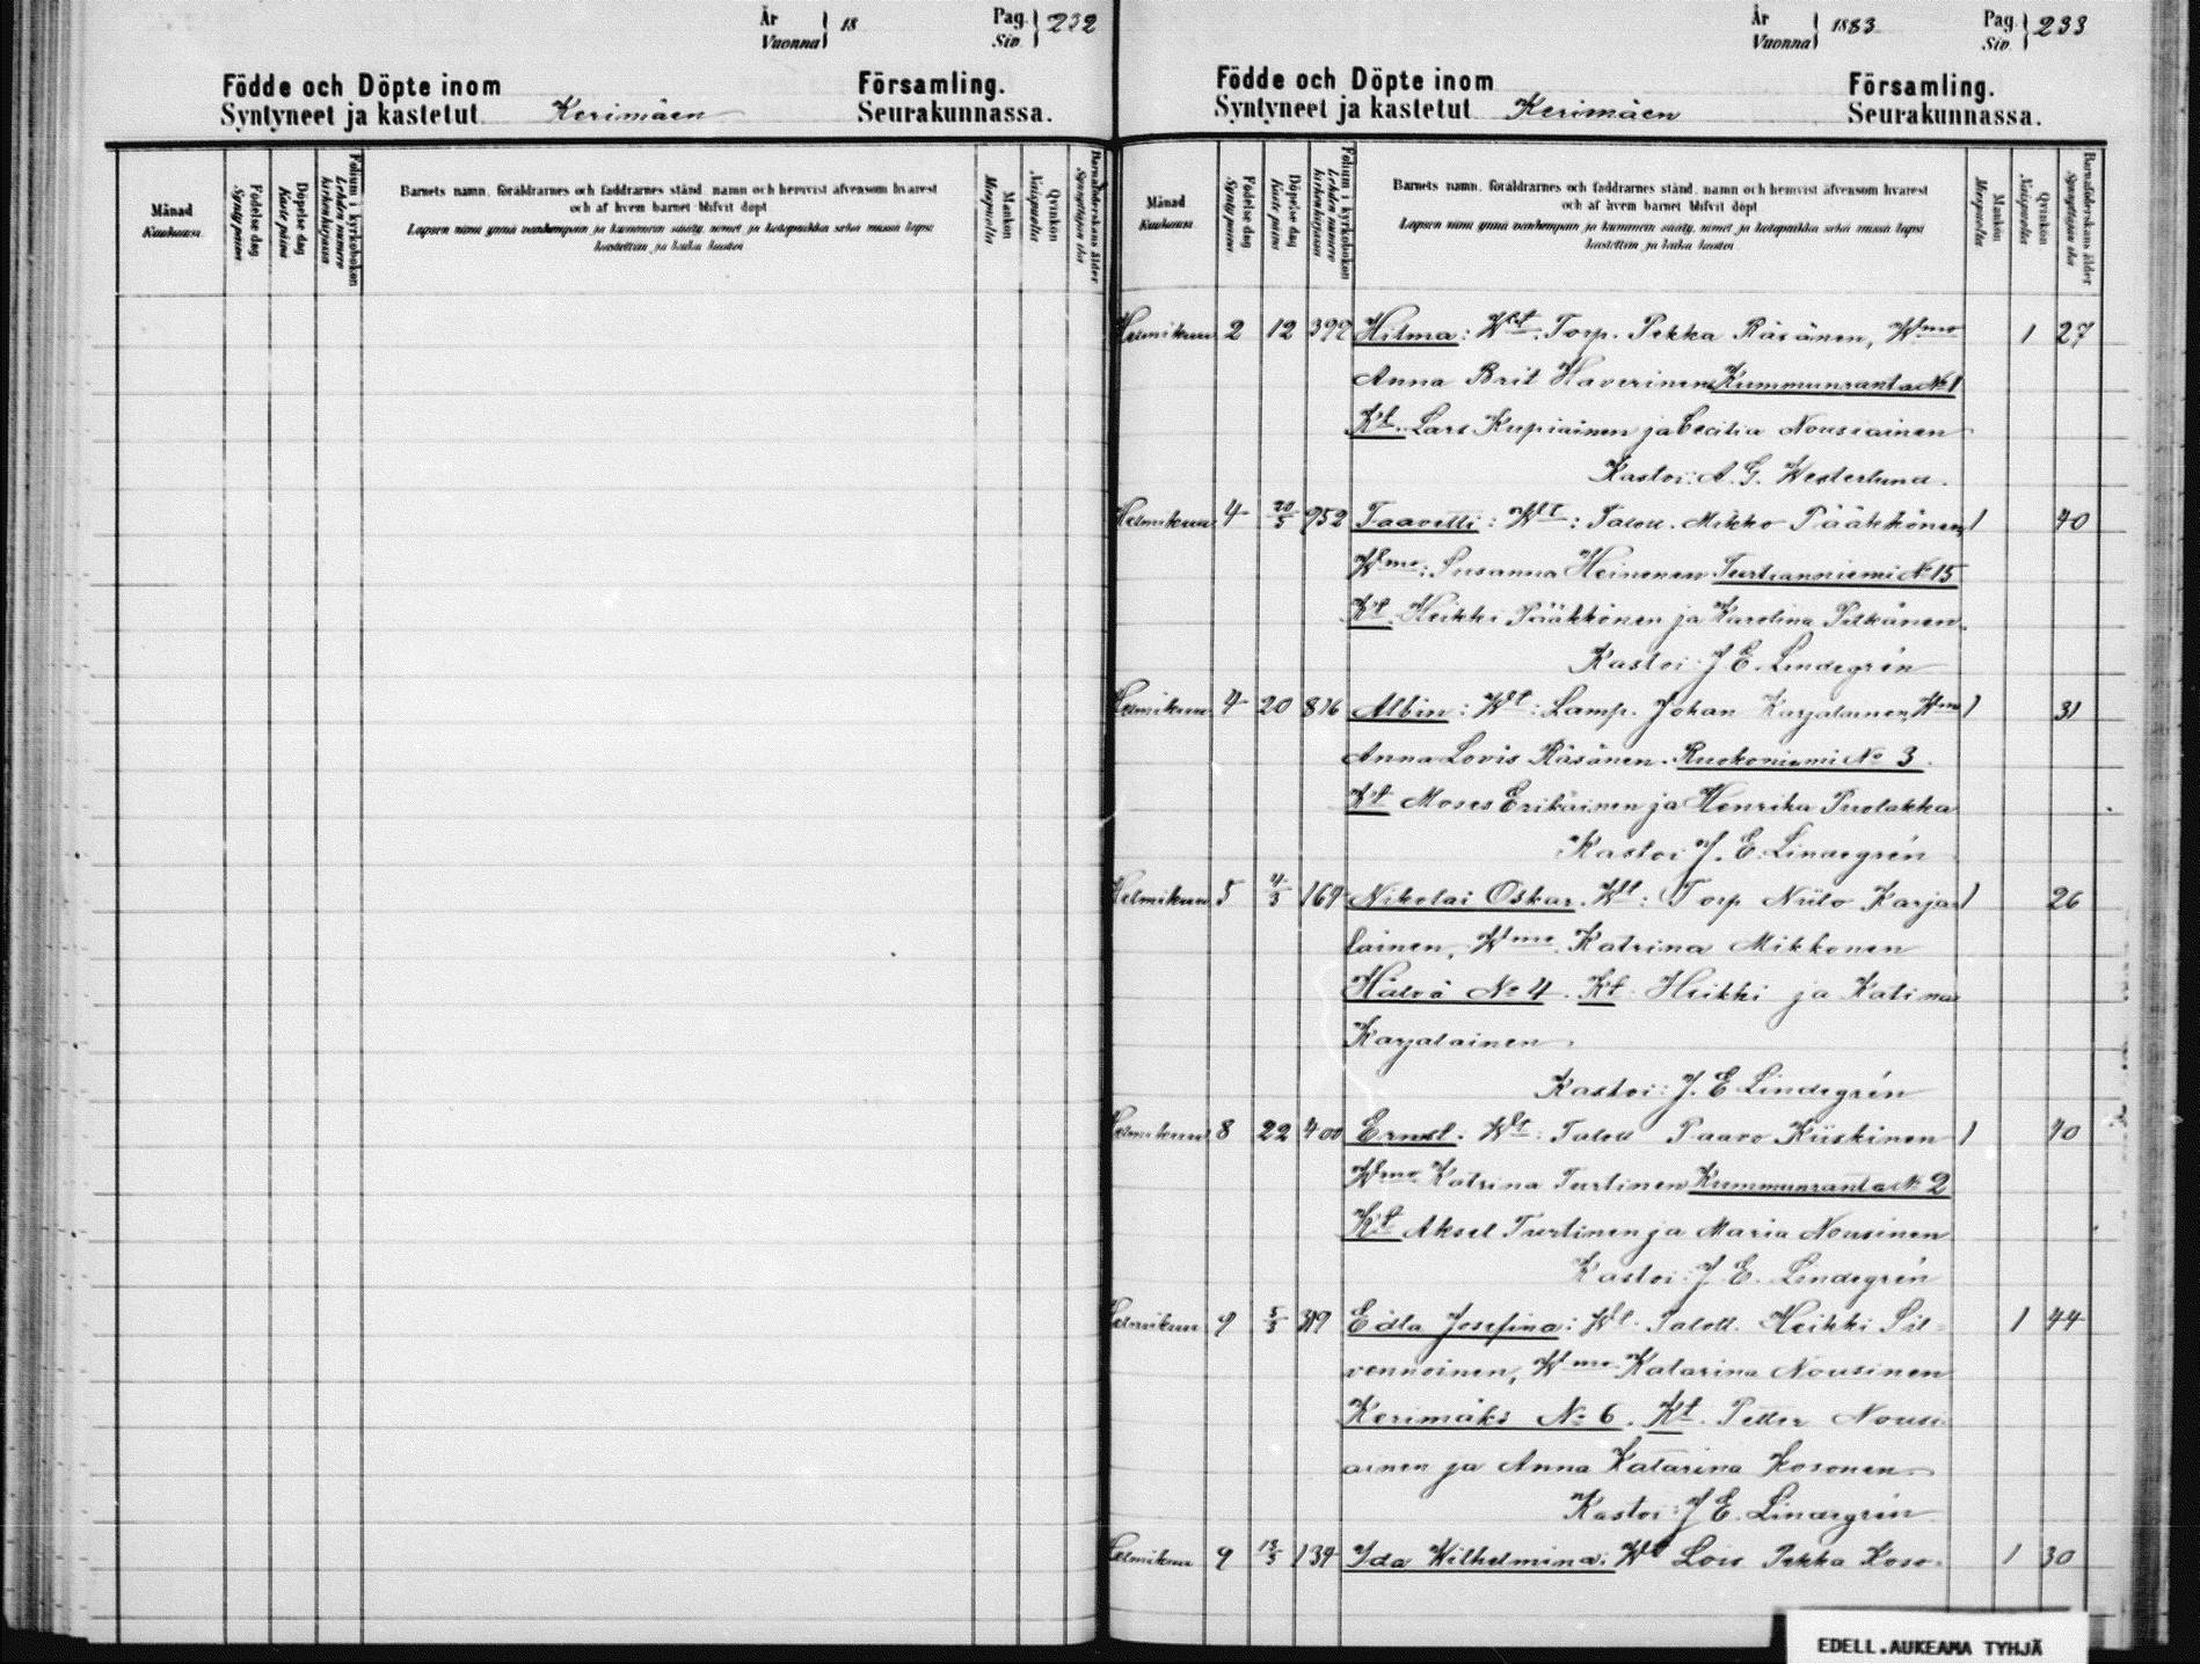 År
Vuonna } 18
Pag.
Siv. } 232
Födde och Döpte inom Församling.
Syntyneet ja kastetut Kerimäen Seurakunnassa.
Månad
Kuukausi.
Födelse dag
Synty päivä
Döpelse dag
Kaste päivä
Folium i kyrkoboken
Lehden numero kirkonkirjassa
Barnets namn, föräldrarnes och faddrarnes stånd, namn och hemvist äfvensom hvarest
och af hvem barnet blifvit döpt
Lapsen nimi ynnä vanhempain ja kummein sääty, nimet ja kotopaikka sekä missä lapsi
kastettiin ja kuka kastoi
Mankön
Miespuolta
Qvinkön
Naispuolta
Barnaföderskans ålder
Synnyttäjän ikä
År
Vuonna } 1883
Pag.
Siv. } 233
Födde och Döpte inom Församling.
Syntyneet ja kastetut Kerimäen Seurakunnassa.
Månad
Kuukausi
Födelse dag
Synty päivä
Döpelse dag
Kaste päivä
Folium i kyrkoboken
Lehden numero kirkonkirjassa
Barnets namn, föräldrarnes och faddrarnes stånd, namn och hemvist äfvensom hvarest
och af hvem barnet blifvit döpt
Lapsen nimi ynnä vanhempain ja kummein sääty, nimet ja kotopaikka sekä missä lapsi
kastettiin ja kuka kastoi
Mankön
Miespuolta
Qvinkön
Naispuolta
Barnaföderskans ålder
Synnyttäjän ikä
Helmikuu 2 12 399 Hilma: Wlt: Torp. Pekka Räsänen, Wmo 1 27
Anna Brit Haverinen Kummunranta No 1
Kt. Lars Kupiainen ja Cecilia Nousiainen
Kastoi: A. G. Westerlund.
Helmikuu 4 20/5 952 Taavetti: Wlt: Taloll. Mikko Pääkkönen 1 40
Wmo: Susanna Heinonen Turtianniemi No 15
Kt. Heikki Pääkkönen ja Karolina Pitkänen
Kastoi: J. E. Lindegrén
Helmikuu 4 20 816 Albin: Wt: Lamp. Johan Karjalainen, Wmo 1 31
Anna Lovis Räsänen. Ruokoniemi No 3.
Kt Moses Erikäinen ja Henrika Puolakka
Kastoi J. E. Lindegrén
Helmikuu 5 4/3 169 Nikolai Oskar. Wlt: Torp Niilo Karja- 1 26
lainen, Wmo Katrina Mikkonen
Hälvä No 4. Kt. Heikki ja Katina
Karjalainen.
Kastoi: J. E. Lindegrén
Helmikuu 8 22 400 Ernst. Wlt: Taloll Paavo Kiiskinen 1 40
Wmo Katrina Turtinen Kummunranta No 2
Kt Aksel Turtinen ja Maria Nousinen
Kastoi: J. E. Lindegrén
Helmikuu 9 5/3 319 Edla Josefina: Wt. Taloll. Heikki Sil- 1 44
vennoinen, Wmo Katarina Nousinen
Kerimäki No 6. Kt. Petter Nousi-
ainen ja Anna Katarina Kosonen.
Kastoi: J. E. Lindegrén
Helmikuu 9 13/3 139 Ida Wilhelmina: Wt Lois Pekka Koso- 1 30
EDELL.AUKEAMA TYHJÄ